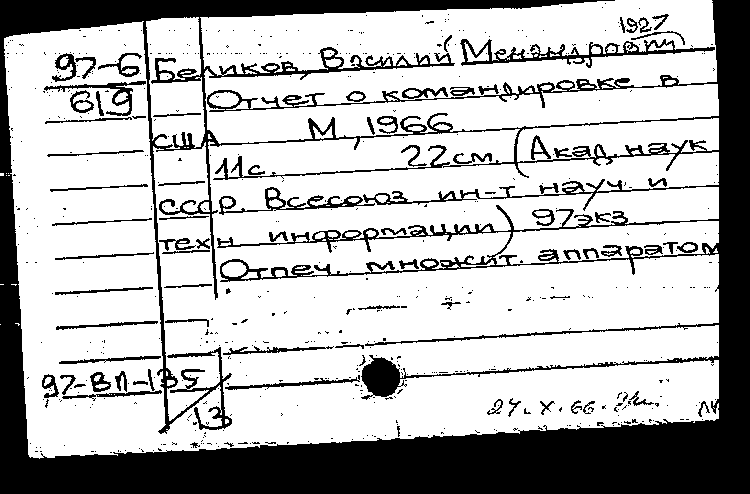 1927
97-6 Беликов, Василий Менандрович
619 Отчет о командировке в
США М., 1966
11с. 22см. (Акад. наук
СССР. Всесоюз. ин-т науч. и
техн. информации) 97экз
Отпеч. множит. аппаратом
97-ВП-135
13
24.X.66.